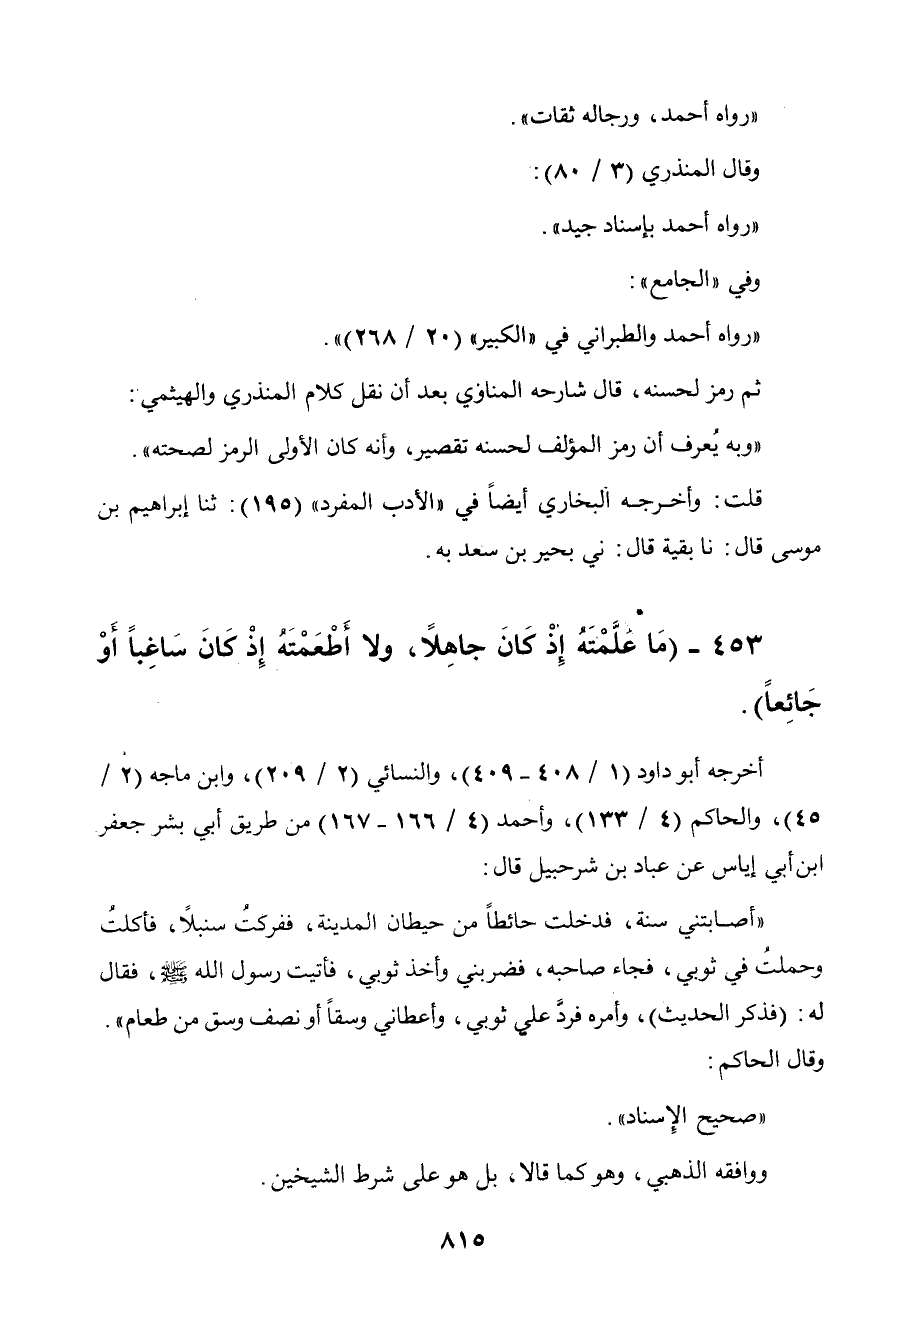 «رواه أحمد، ورجاله ثقات».
وقال المنذري (٣ / ٨٠):
«رواه أحمد بإسناد جيد».
وفي «الجامع»:
«رواه أحمد والطبراني في «الكبير» (٢٠ / ٢٦٨)».
ثم رمز لحسنه، قال شارحه المناوي بعد أن نقل كلام المنذري والهيثمي:
«وبه يُعرف أن رمز المؤلف لحسنه تقصير، وأنه كان الأولى الرمز لصحته».
قلت: وأخرجه البخاري أيضاً في «الأدب المفرد» (١٩٥): ثنا إبراهيم بن
موسى قال: نا بقية قال: ني بحير بن سعد به.
٤٥٣ - (مَا عَلَّمْتَهُ إِذْ كَانَ جاهِلًا، ولا أَطْعَمْتَهُ إِذْ كَانَ سَاغِباً أَوْ
جَائِعاً).
أخرجه أبو داود (١ / ٤٠٨ - ٤٠٩)، والنسائي (٢ / ٢٠٩)، وابن ماجه (٢ /
٤٥)، والحاكم (٤ / ١٣٣)، وأحمد (٤ / ١٦٦ - ١٦٧) من طريق أبي بشر جعفر
ابن أبي إياس عن عباد بن شرحبيل قال:
«أصابتني سنة، فدخلت حائطاً من حيطان المدينة، ففركتُ سنبلًا، فأكلتُ
وحملتُ في ثوبي، فجاء صاحبه، فضربني وأخذ ثوبي، فأتيت رسول الله ﷺ، فقال
له: (فذكر الحديث)، وأمره فردَّ علي ثوبي، وأعطاني وسقاً أو نصف وسق من طعام».
وقال الحاكم:
«صحيح الإسناد».
ووافقه الذهبي، وهو كما قالا، بل هو على شرط الشيخين.
٨١٥